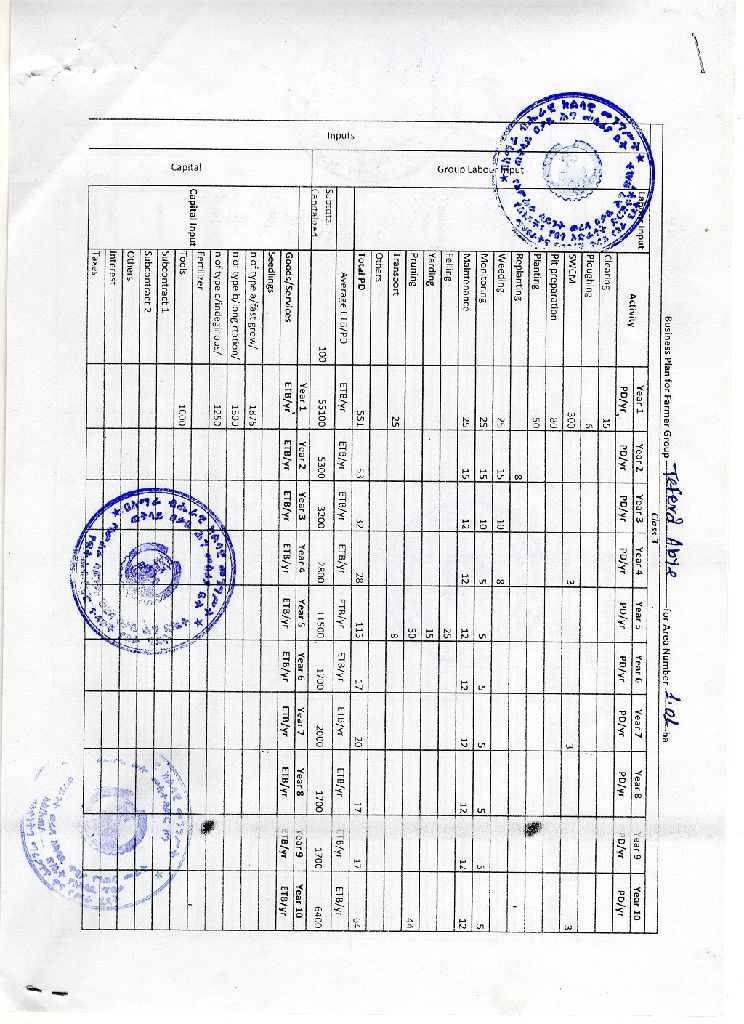 Business Plan for Farmer Group Teferd Abye for Area Number 1.01 ha
Class 3
Inputs
Labour Input
Activity Year 1 Year 2 Year 3 Year 4 Year 5 Year 6 Year 7 Year 8 Year 9 Year 10
PD/yr PD/yr PD/yr PD/yr PD/yr PD/yr PD/yr PD/yr PD/yr PD/yr
Group Labour Input
Clearing 15
Ploughing 6
SWCM 300 3 3 3
Pit preparation 80
Planting 50
Replanting 8
Weeding 25 15 10 8
Monitoring 25 15 10 5 5 5 5 5 5 5
Maintenance 25 15 12 12 12 12 12 12 12 12
Felling 25
Yarding 15
Pruning 50 44
Transport 25 8
Others
Total PD 551 53 32 28 115 17 20 17 17 64
Average ETB/PD ETB/yr ETB/yr ETB/yr ETB/yr ETB/yr ETB/yr ETB/yr ETB/yr ETB/yr ETB/yr
Subtotal Capitalized 100 55100 5300 3200 2800 11500 1700 2000 1700 1700 6400
Capital
Capital Input
Goods/Services Year 1 Year 2 Year 3 Year 4 Year 5 Year 6 Year 7 Year 8 Year 9 Year 10
ETB/yr ETB/yr ETB/yr ETB/yr ETB/yr ETB/yr ETB/yr ETB/yr ETB/yr ETB/yr
Seedlings
n of type a/fast grow/ 1875
n of type b/long rotation/ 1500
n of type c/indeginous/ 1250
Fertilizer
Tools 1000
Subcontract 1
Subcontract 2
Others
Interest
Taxes